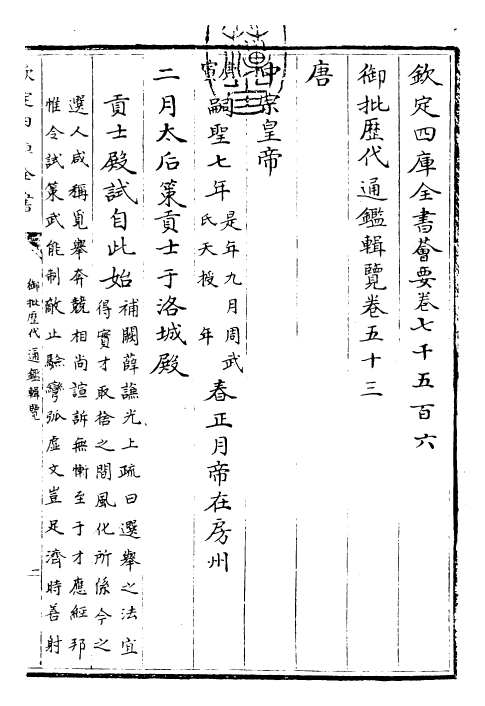 欽定四庫全書薈要卷七千五百六
御批歷代通鑑輯覽卷五十三
唐
中宗皇帝
嗣聖七年
是年九月周武
氏天授年
春正月帝在房州
二月太后策貢士于洛城殿
貢士殿試自此始
補闕薛謙光上疏曰選舉之法宜
得實才取捨之間風化所係今之
選人咸稱覓舉奔競相尚諠訴無慚至于才應經邦
惟令試策武能制敵止驗彎弧虛文豈足濟時善射
欽定四庫全書
御批歷代通鑑輯覽
二